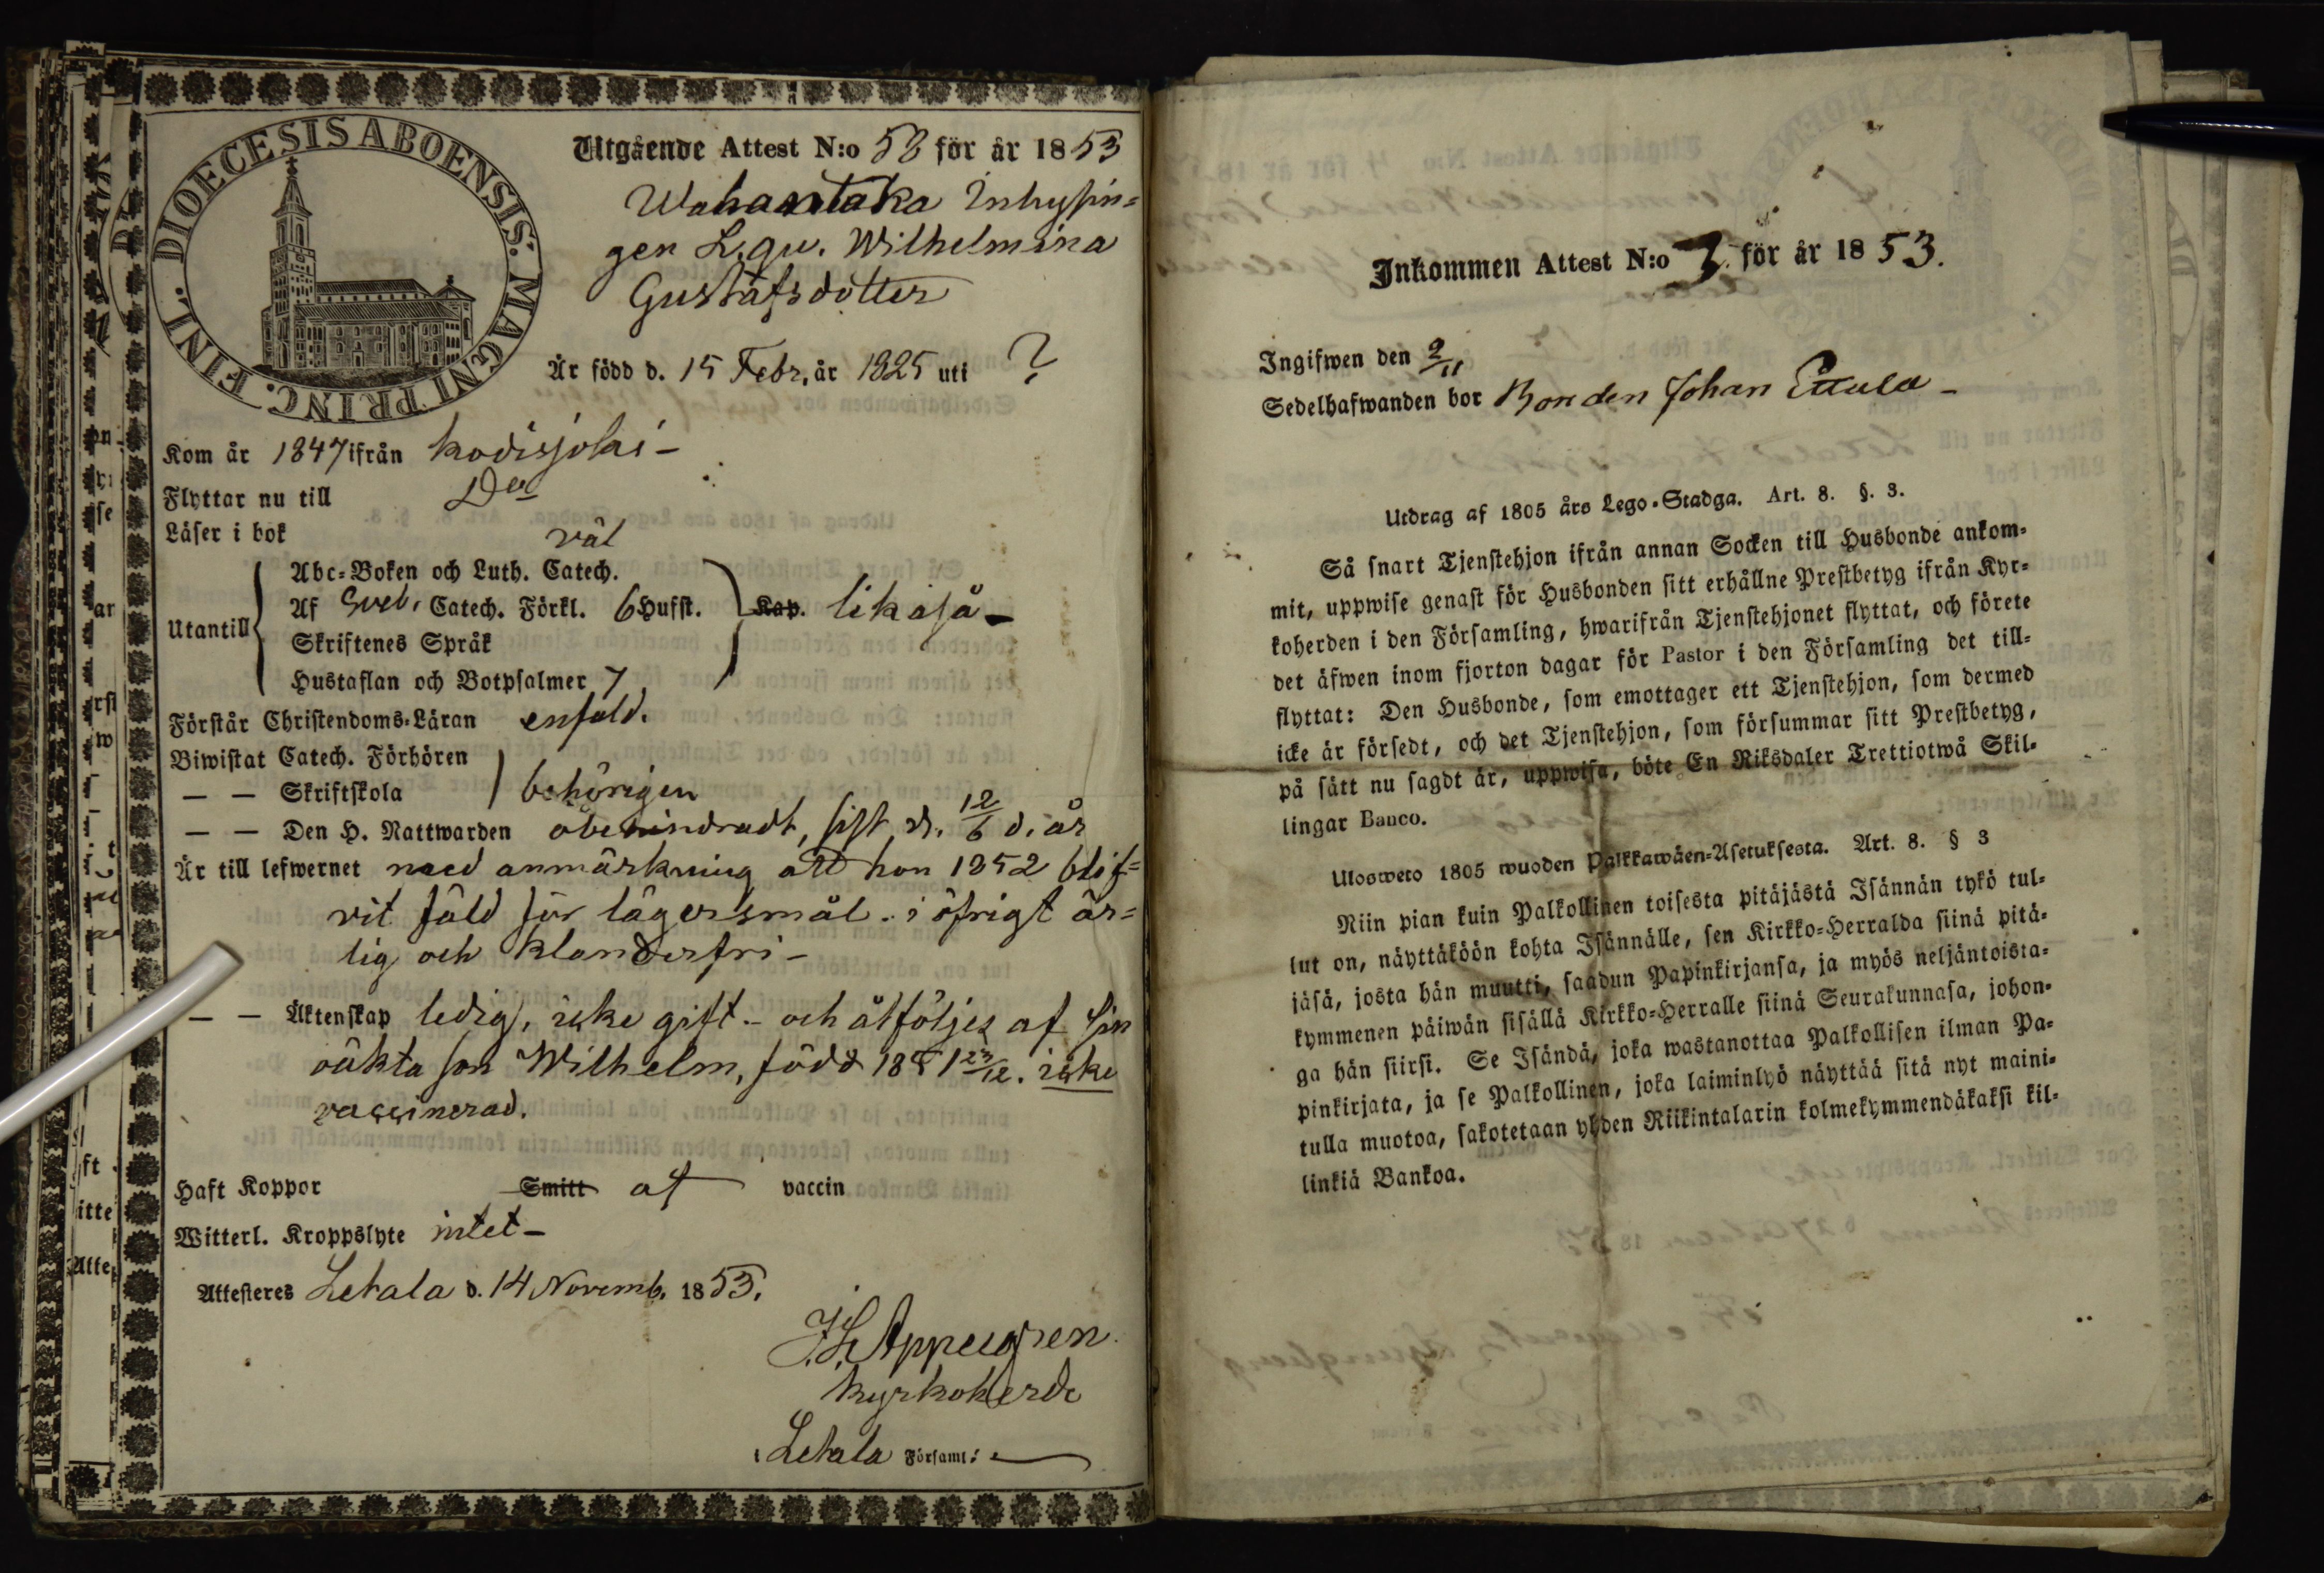 DIOECESIS ABOENSIS. MAGNI PRINC. FINL.
Utgående Attest N:o 53 för år 1853
Wahantaka Inhysin=
gen L.qv. Wilhelmina
Gustafsdotter
Är född d. 15 Febr. år 1825 uti ?
Kom år 1847 ifrån Kodisjoki –
Flyttar nu till Do
Läser i bok väl
Utantill
Abc-Boken och Luth. Catech.
Af Sveb. Catech. Förkl. 6 Hufst.
Skriftenes Språk
Hustaflan och Botpsalmer 7
Kap. likaså –
Förstår Christendoms-Läran enfald.
Biwistat Catech. Förhören
— — Skriftskola behörigen
— — Den H. Nattwarden obehindradt, sist d. 12/6 d. år
Är till lefwernet med anmärkning att hon 1852 blif=
vit fäld för lägersmål. i öfrigt är=
lig och klanderfri –
— — Äktenskap ledig, icke gift – och åtföljes af sin
oäkta son Wilhelm, född 1851 23/12. icke
vaccinerad.
Haft Koppor Smitt af vaccin
Witterl. Kroppslyte intet –
Attesteres Letala d. 14 Novemb. 1853.
J. L. Appelgren
Kyrkoherde
i Letala Församl:
Inkommen Attest N:o 7. för år 1853.
Ingifwen den 2/11
Sedelhafwanden bor Bonden Johan Ettala –
Utdrag af 1805 års Lego-Stadga. Art. 8. §. 3.
Så snart Tjenstehjon ifrån annan Socken till Husbonde ankom-
mit, uppwise genast för Husbonden sitt erhållne Prestbetyg ifrån Kyr-
koherden i den Församling, hwarifrån Tjenstehjonet flyttat, och förete
det äfwen inom fjorton dagar för Pastor i den Församling det till-
flyttat: Den Husbonde, som emottager ett Tjenstehjon, som dermed
icke är försedt, och det Tjenstehjon, som försummar sitt Prestbetyg,
på sätt nu sagdt är, uppwisa, böte En Riksdaler Trettiotwå Skil-
lingar Banco.
Ulosweto 1805 wuoden Palkkawäen-Asetuksesta. Art. 8. § 3
Niin pian kuin Palkollinen toisesta pitäjästä Isännän tykö tul-
lut on, näyttäköön kohta Isännälle, sen Kirkko-Herralda siinä pitä-
jäsä, josta hän muutti, saadun Papinkirjansa, ja myös neljäntoista-
kymmenen päiwän sisällä Kirkko-Herralle siinä Seurakunnasa, johon-
ga hän siirsi. Se Isändä, joka wastanottaa Palkollisen ilman Pa-
pinkirjata, ja se Palkollinen, joka laiminlyö näyttää sitä nyt maini-
tulla muotoa, sakotetaan yhden Riikintalarin kolmekymmendäkaksi kil-
linkiä Bankoa.